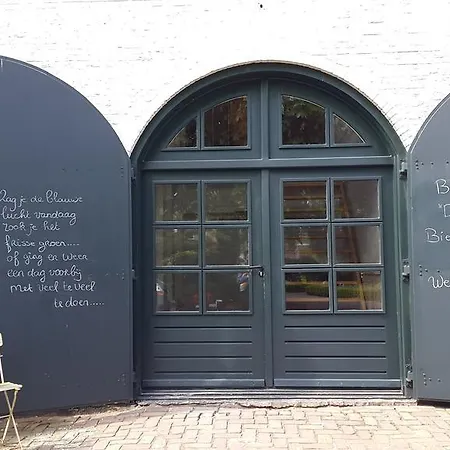 Zag je de blauwe
lucht vandaag
rook je het
frisse groen....
of ging er weer
een dag voorbij
met veel te veel
te doen.....
B
"D
Bie
We